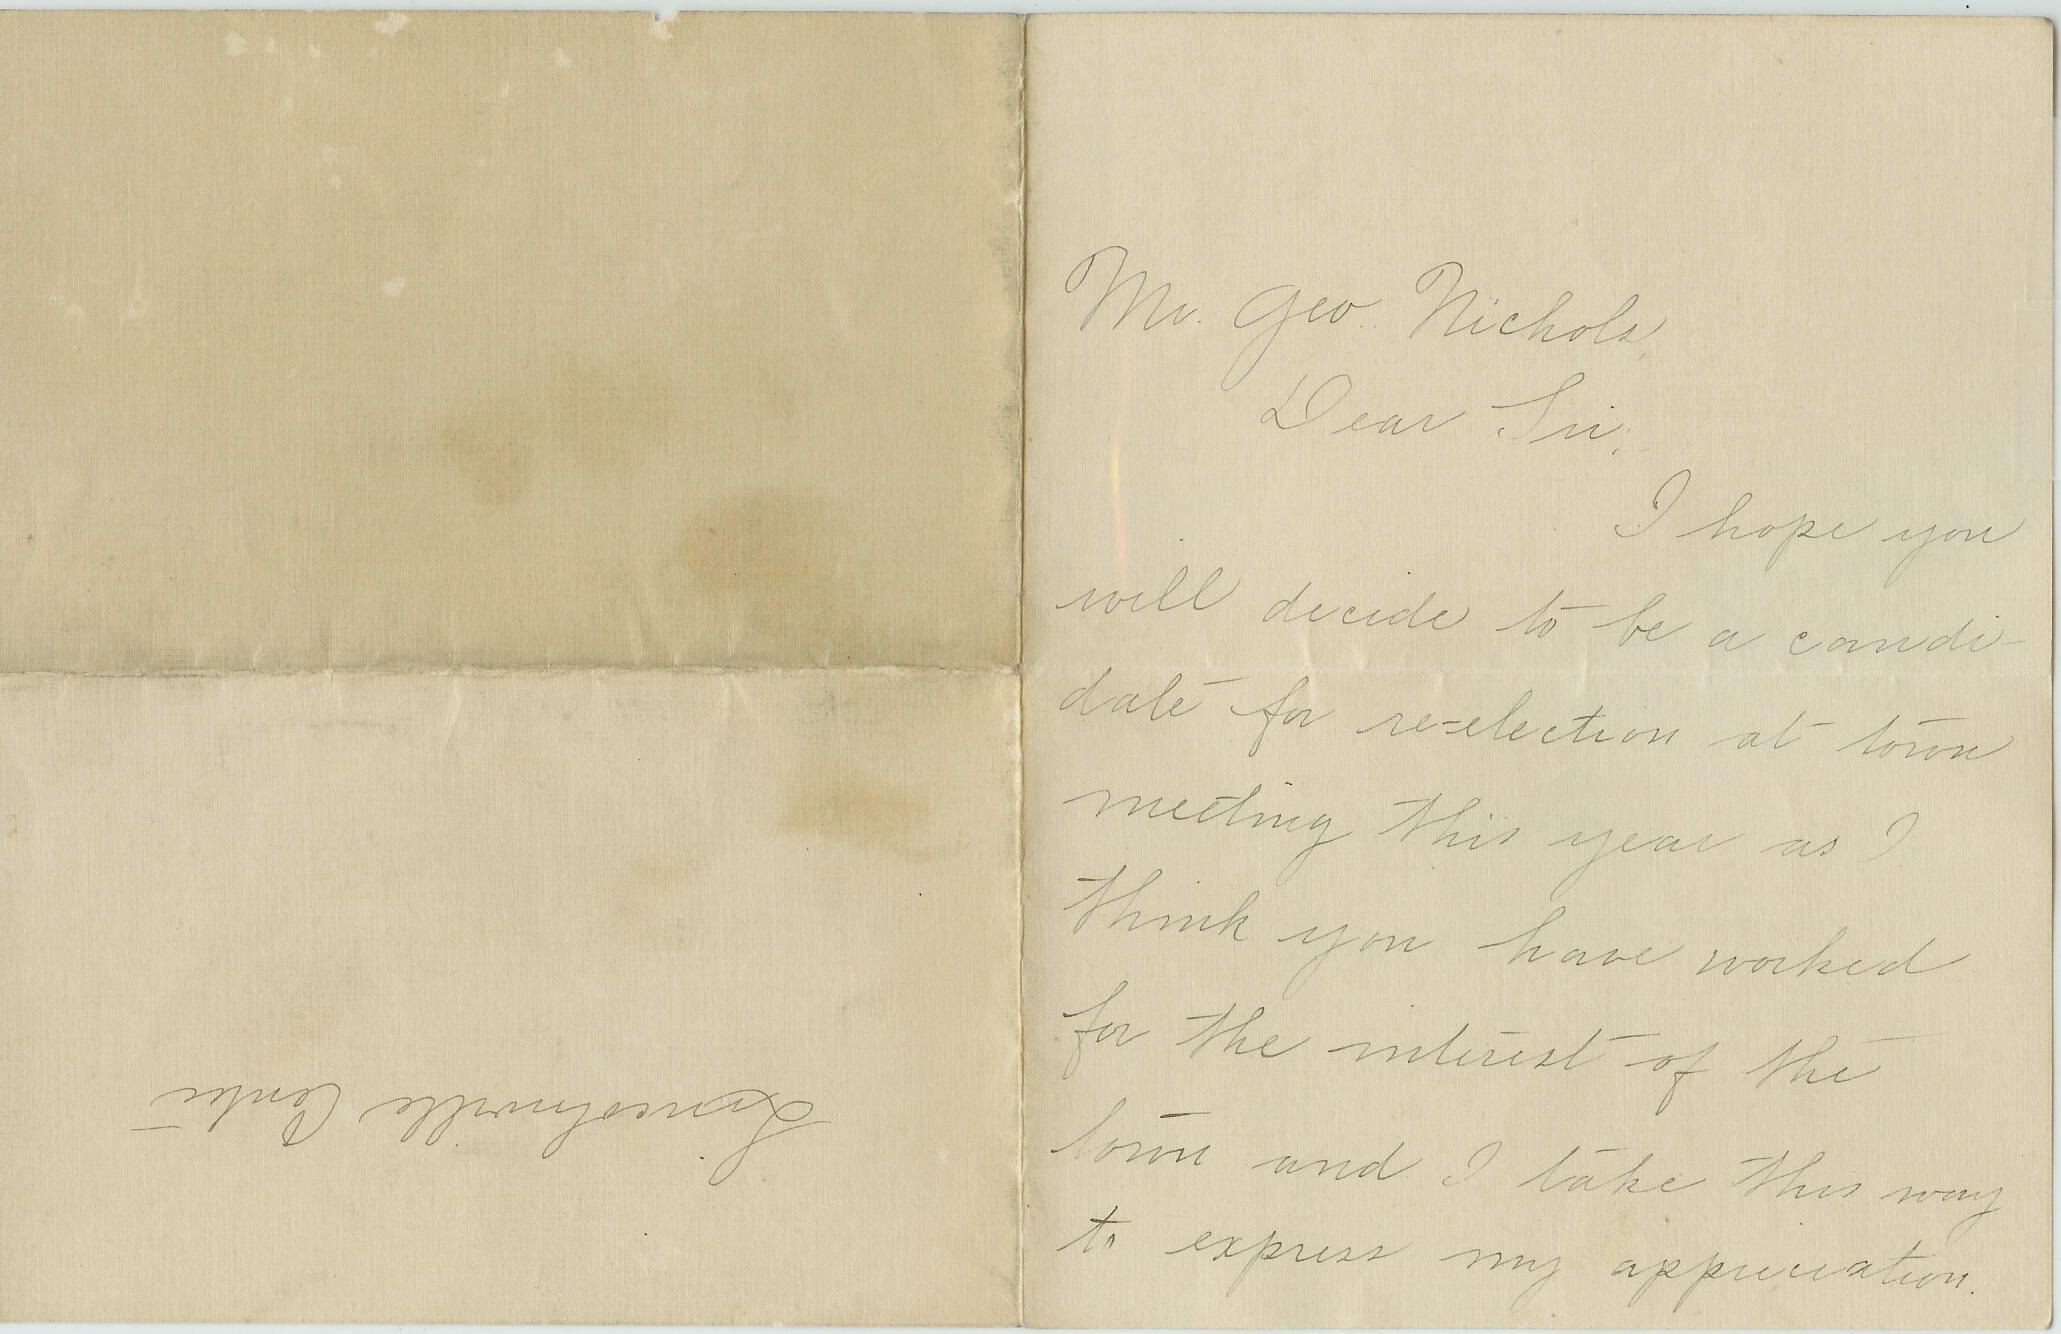 Mr. Geo. Nichols,
Dear Sir:
I hope you
will decide to be a candi-
date for re-election at town
meeting this year as I
think you have worked
for the interest of the
town and I take this way
to express my appreciation.
Lincolnville Center